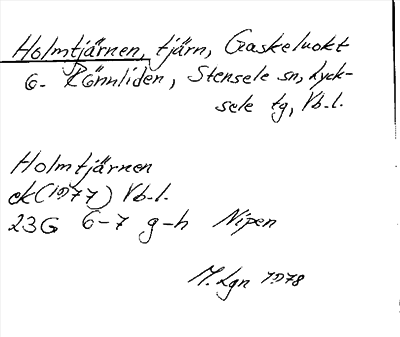 Holmtjärnen, tjärn, Gaskeluokt
o. Rönnliden, Stensele sn, Lyck-
sele tg, Vb.l.
Holmtjärnen
ek (1977) Vb.l.
23G 6-7 g-h Nipen
M. Lgn 1978